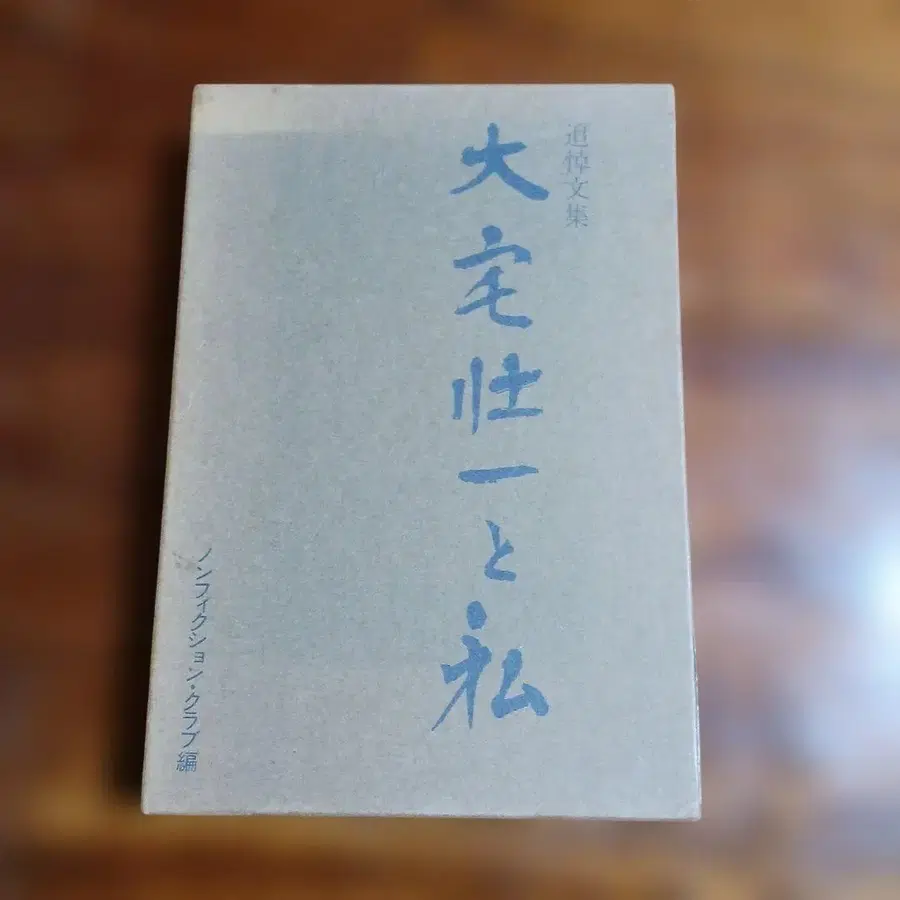 追悼文集
大宅壮一と私
ノンフィクション・クラブ編